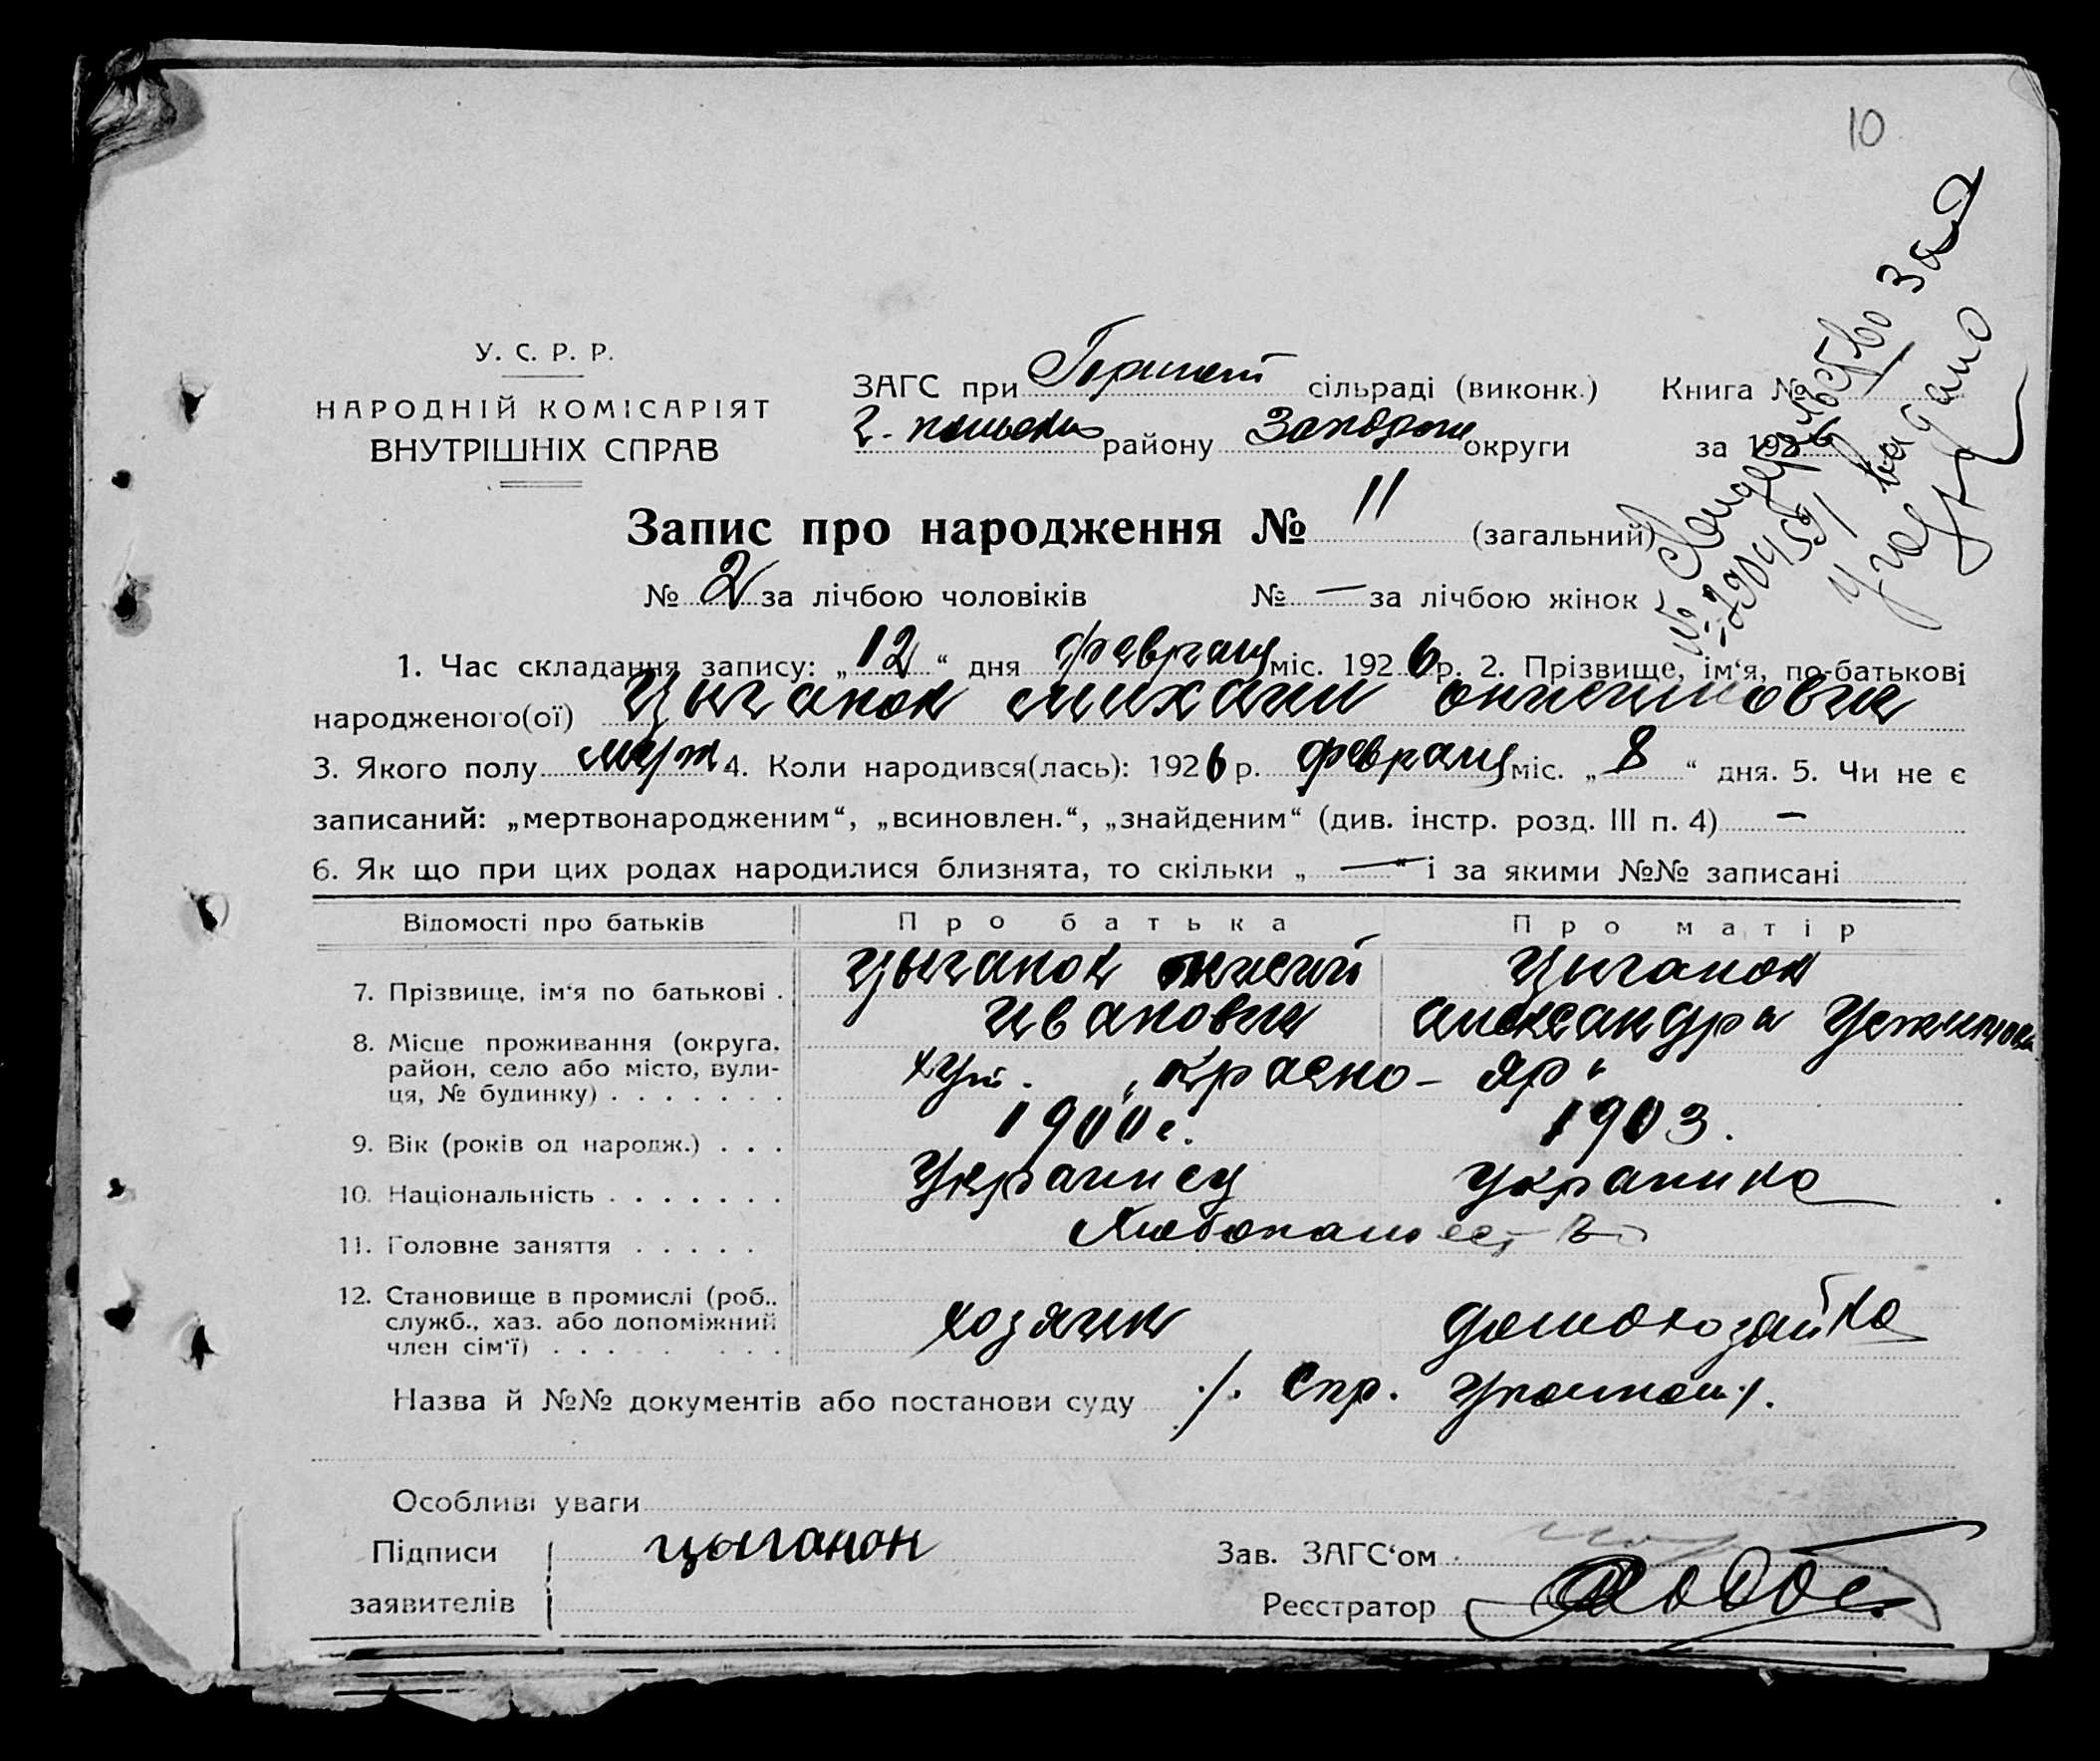 10
У. С. Р. Р.
НАРОДНІЙ КОМІСАРІЯТ
ВНУТРІШНІХ СПРАВ
ЗАГС при сільраді (виконк.) Книга №
району округи за 1926
Запис про народження № 11 (загальний)
№ 2 за лічбою чоловіків № — за лічбою жінок
1. Час складання запису: „12“ дня февраля міс. 1926 р. 2. Прізвище, ім‘я, по-батькові
народженого(ої) Цыганок Михаил
3. Якого полу муж 4. Коли народився(лась): 1926 р. февраля міс. „8“ дня. 5. Чи не є
записаний: „мертвонародженим“, „всиновлен.“, „знайденим“ (див. інстр. розд. III п. 4) —
6. Як що при цих родах народилися близнята, то скільки „—“ і за якими №№ записані
Відомості про батьків Про батька Про матір
7. Прізвище, ім‘я по батькові . Цыганок Цыганок
Иванович Александра
8. Місце проживання (округа, район, село або місто, вулиця, № будинку) . . . . . . . хут. „Красно-Яр“
9. Вік (років од народж.) . . . 1900 г. 1903.
10. Національність . . . . . . . Украинец Украинка
11. Головне заняття . . . . . Хлебопашество
12. Становище в промислі (роб., служб., хаз. або допоміжний член сім‘ї) . . . . . . . . хозяин домохозяйка
Назва й №№ документів або постанови суду ./. Спр. ./.
Особливі уваги
Підписи цыганок Зав. ЗАГС‘ом
заявителів Реєстратор
Свидетельство ЗАГС
№ выдано